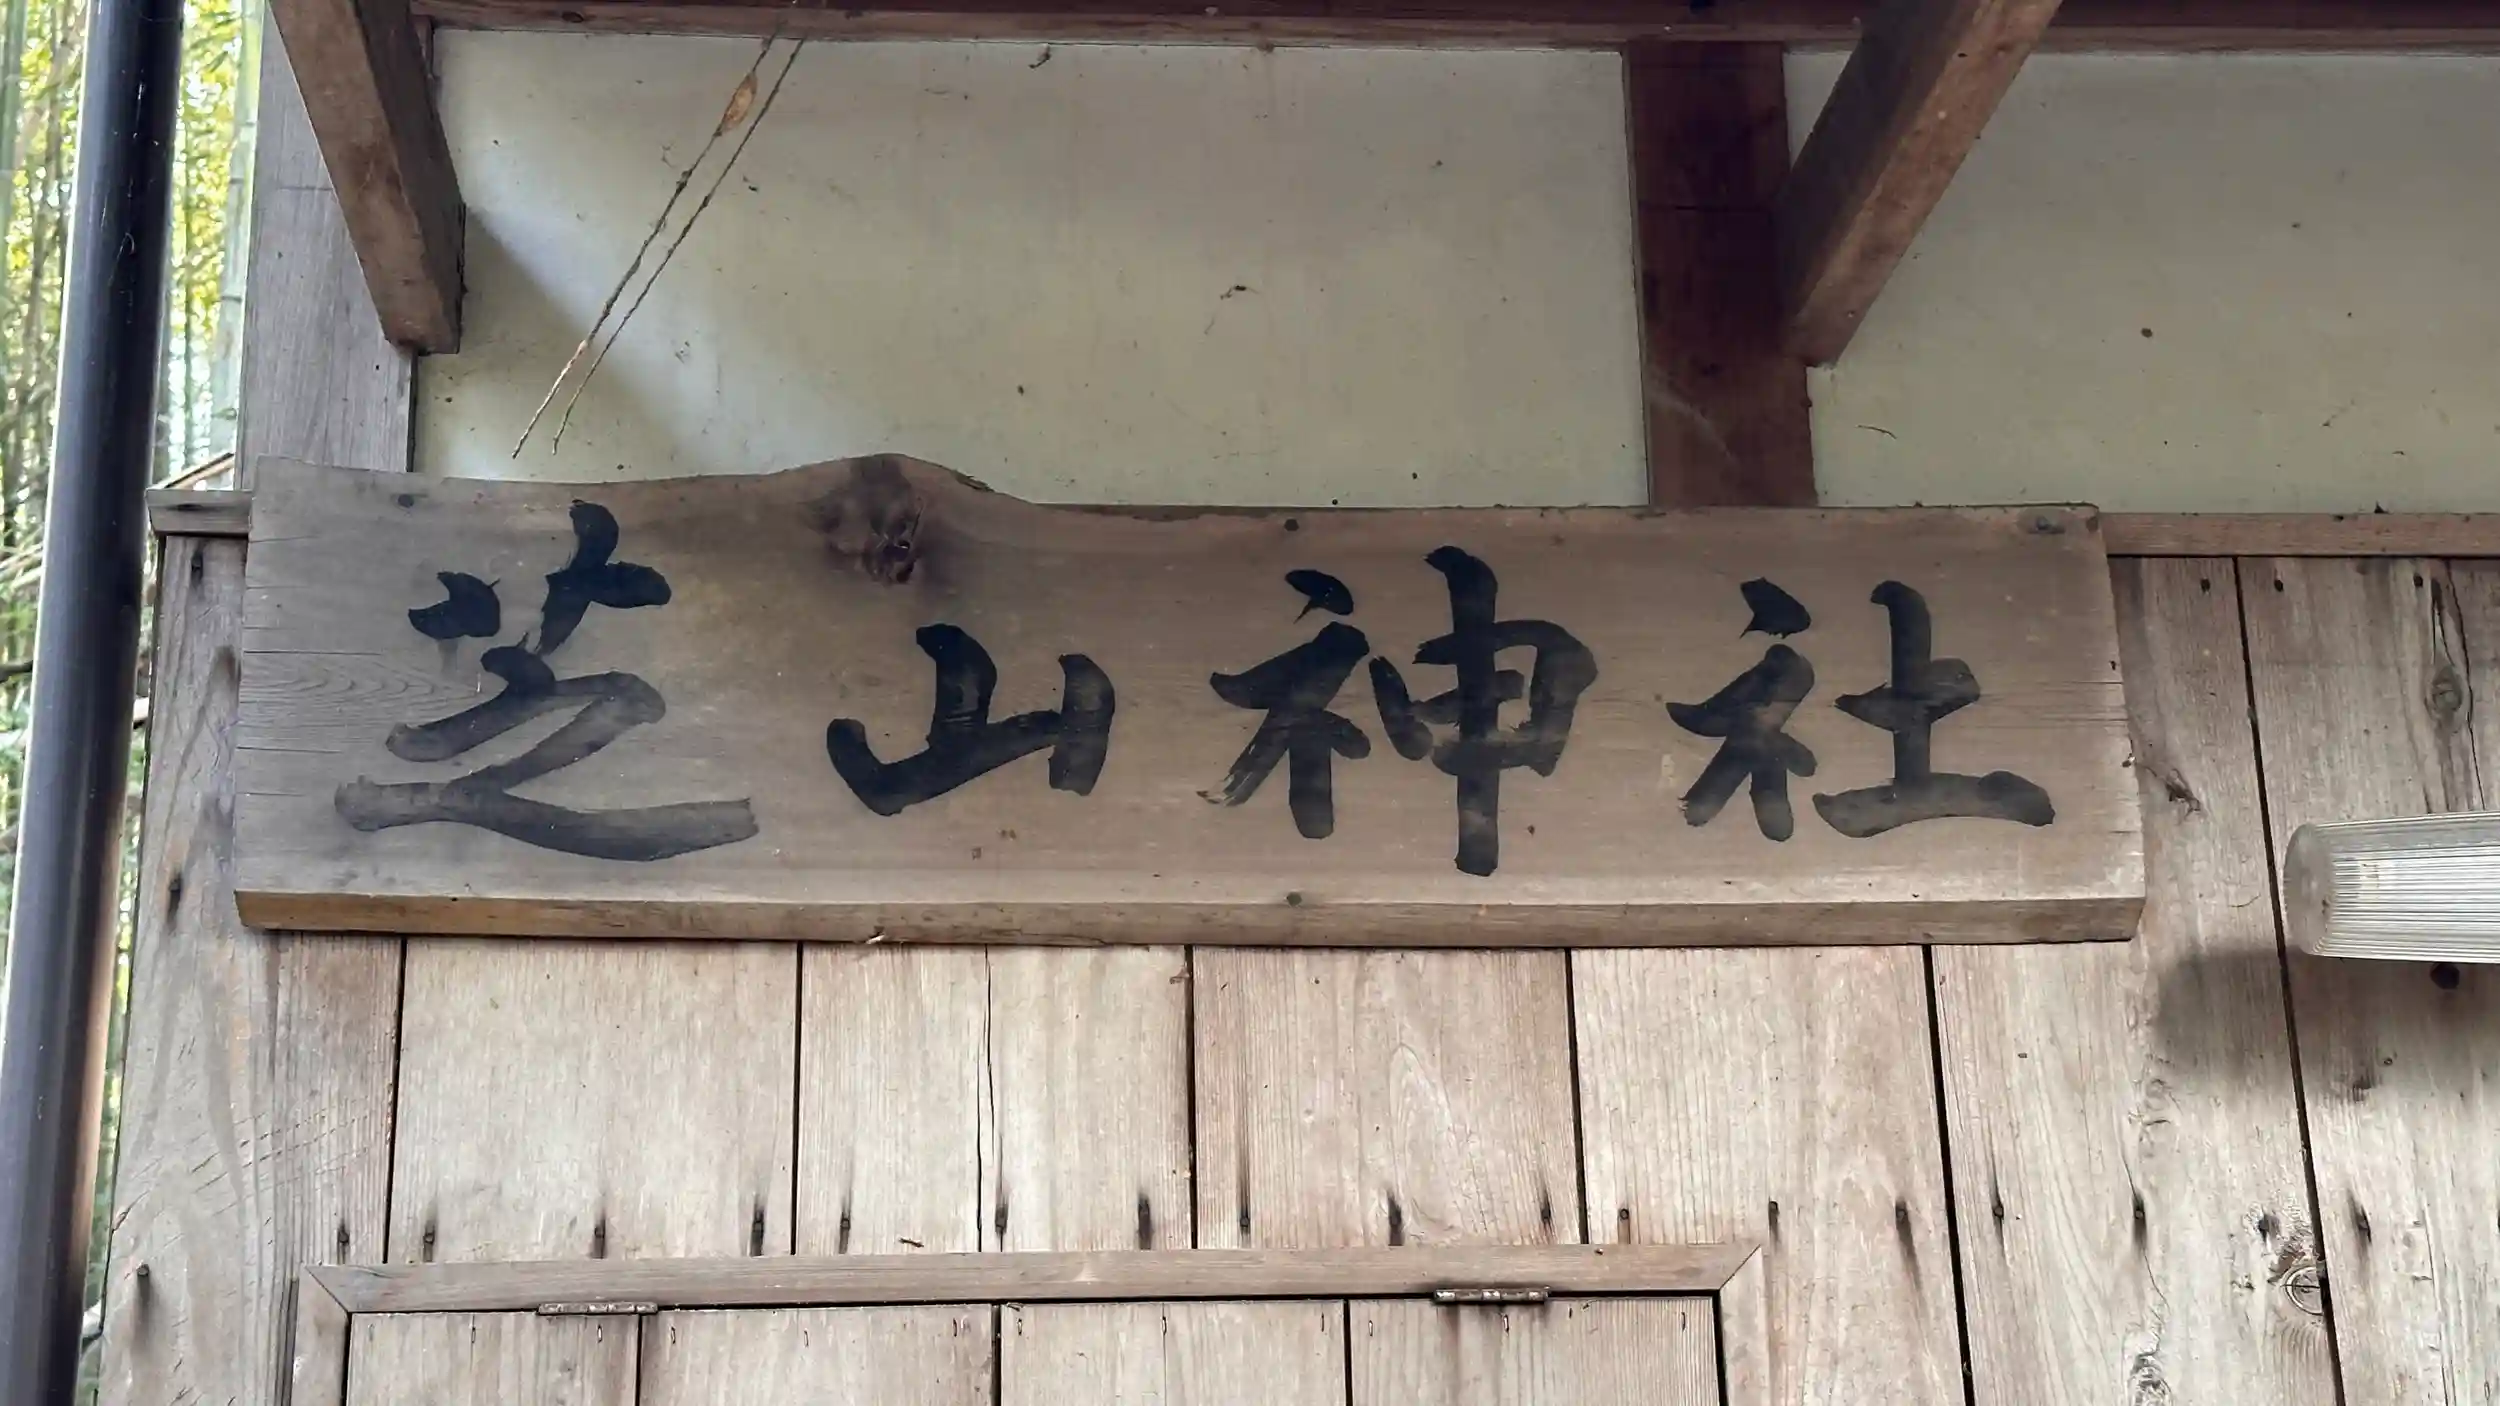 芝山神社